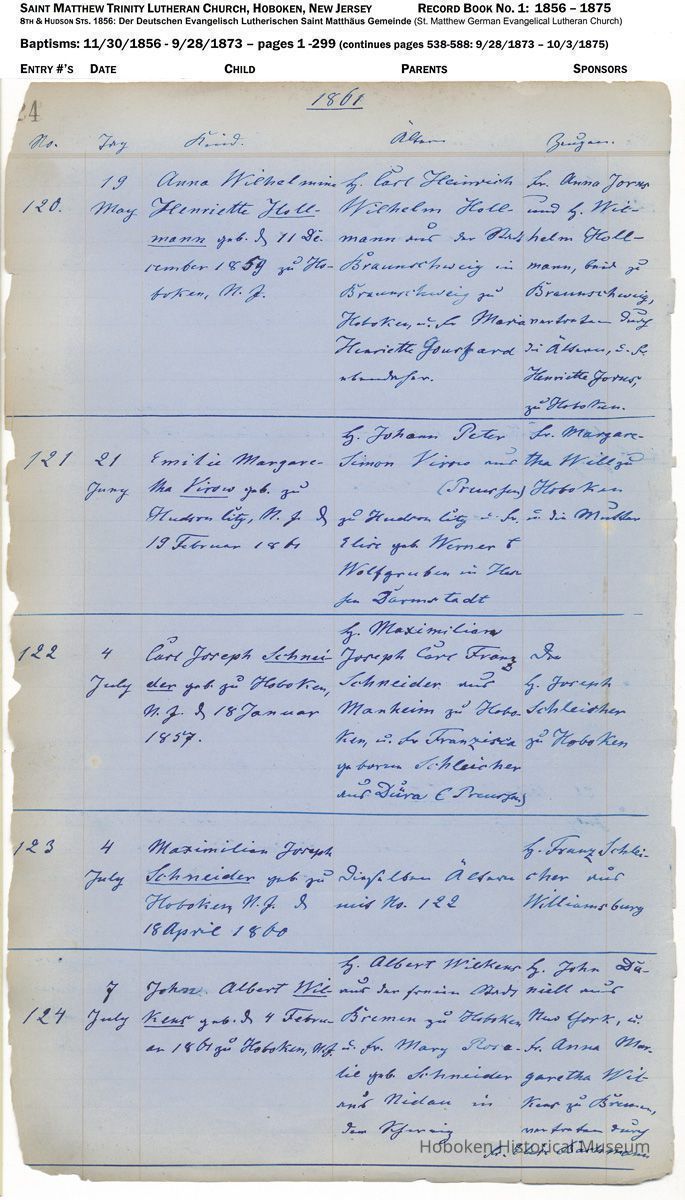 SAINT MATTHEW TRINITY LUTHERAN CHURCH, HOBOKEN, NEW JERSEY RECORD BOOK NO. 1: 1856 – 1875
8TH & HUDSON STS. 1856: Der Deutschen Evangelisch Lutherischen Saint Matthäus Gemeinde (St. Matthew German Evangelical Lutheran Church)
Baptisms: 11/30/1856 - 9/28/1873 – pages 1 -299 (continues pages 538-588: 9/28/1873 – 10/3/1875)
ENTRY #'S DATE CHILD PARENTS SPONSORS
24
1861
No. Tag Kind. Ältern Zeugen.
120.
19
May
Anna Wilhelmine
Henriette Holl-
mann geb. d. 11 De-
cember 1859 zu Ho-
boken, N. J.
H. Carl Heinrich
Wilhelm Holl-
mann aus der Stadt
Braunschweig in
Braunschweig zu
Hoboken, u. Fr. Maria
Henriette
ebendaher.
Fr. Anna Jorns
und H. Wil-
helm Holl-
mann, beide zu
Braunschweig,
vertreten durch
die Ältern, u. Fr.
Henriette Jorns,
zu Hoboken.
121
21
Juny
Emilie Margare-
tha Virow geb. zu
Hudson City, N. J. d
19 Februar 1861
H. Johann Peter
Simon Virow aus
(Preussen)
zu Hudson City u. Fr.
Elise geb. Werner
Wolfgruben in Hes-
sen Darmstadt
Fr. Margare-
tha Will zu
Hoboken
u. die Mutter
122
4
July
Carl Joseph Schnei-
der geb. zu Hoboken,
N. J. d 18 Januar
1857.
H. Maximilian
Joseph Carl Franz
Schneider aus
Manheim zu Hobo-
ken, u. Fr Franzisca
geboren Schleicher
aus Düra (Preussen)
Der
H. Joseph
Schleicher
zu Hoboken
123
4
July
Maximilian Joseph
Schneider geb zu
Hoboken N. J. d
18 April 1860
Dieselben Ältern
mit No. 122
H. Franz Schlei-
cher aus
Williamsburg
124
7
July
John Albert Wil
kens geb. d. 4 Febru-
ar 1861 zu Hoboken, N.J.
H. Albert Wilkens
aus der freien Stadt
Bremen zu Hoboken
u. Fr. Mary Rosa-
lie geb. Schneider
aus Nidau in
der Schweiz
H. John Da-
niell aus
New York, u.
Fr. Anna Mar-
garetha Wil-
kens zu Bremen,
vertreten durch
Hoboken Historical Museum